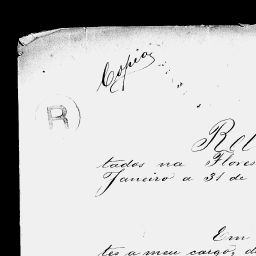 Copia
R
Rel
tados na Flores
Janeiro a 31 de
Em
tes a meu cargo, d